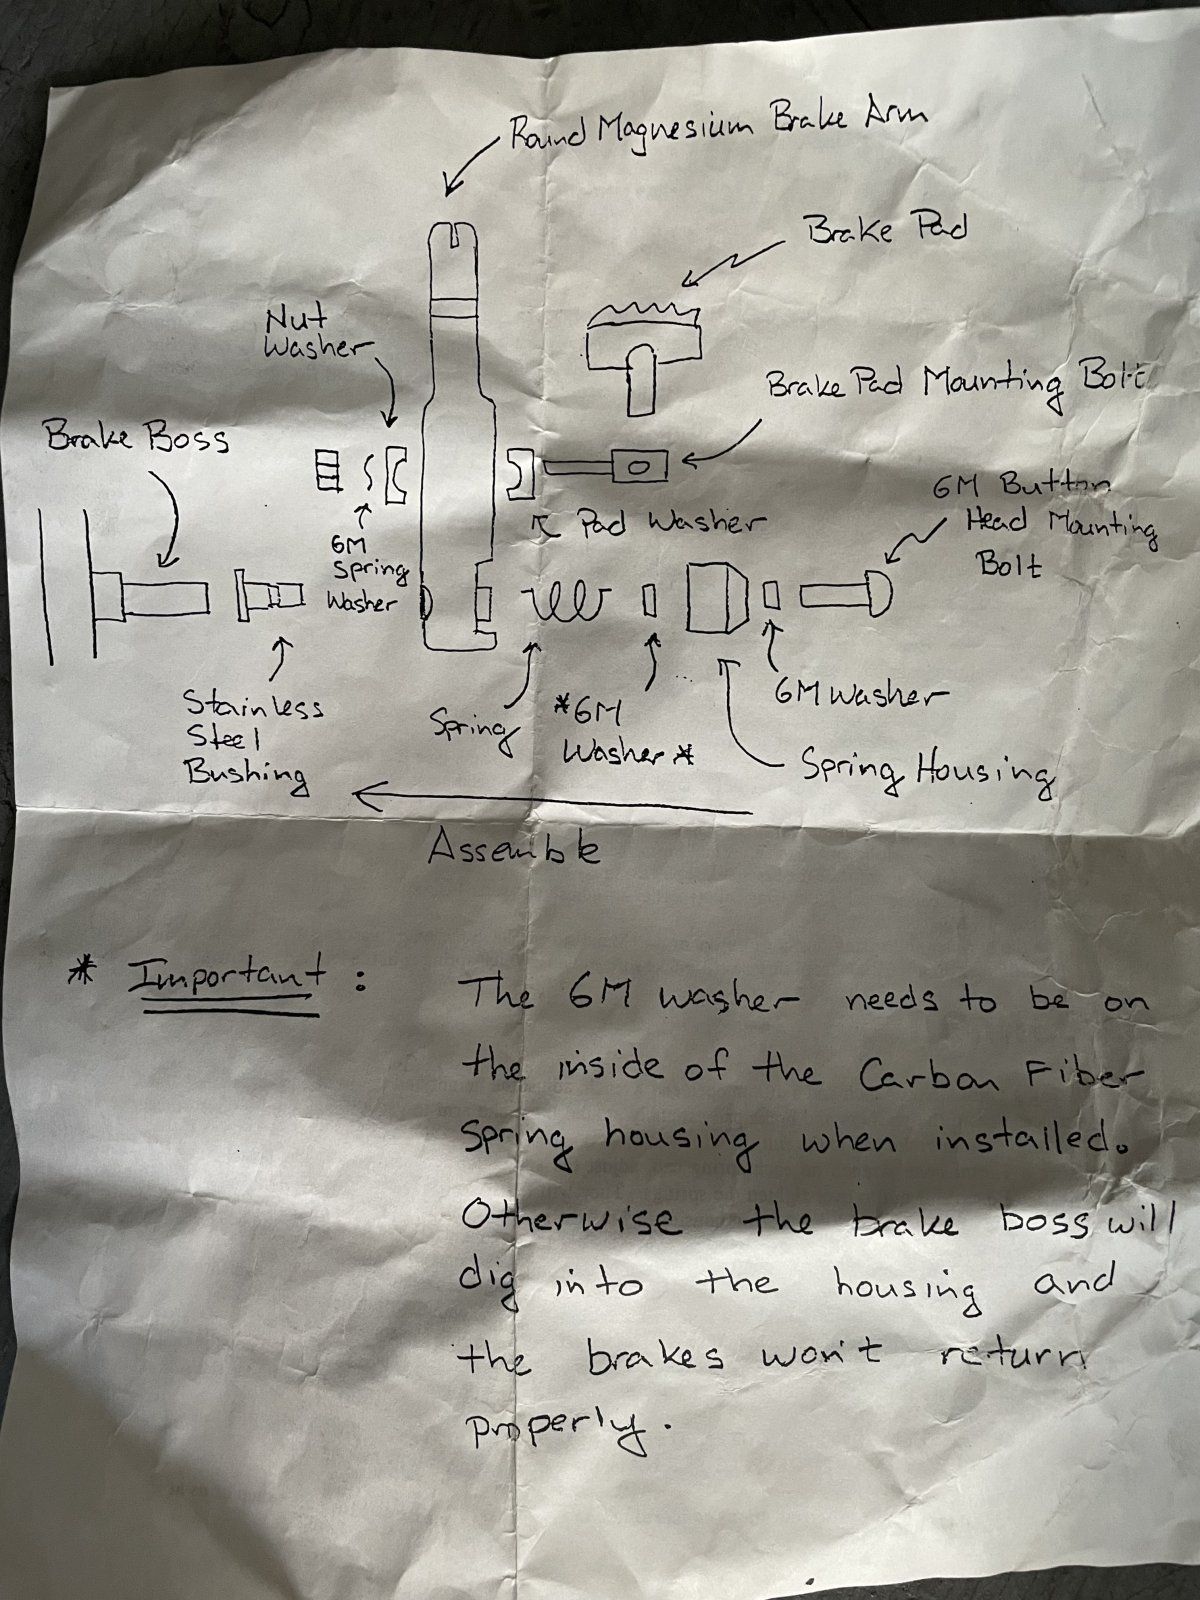 Round Magnesium Brake Arm
Brake Pad
Nut
Washer
Brake Pad Mounting Bolt
Brake Boss
6M Button
Head Mounting
Bolt
Pad Washer
6M
Spring
Washer
Stainless
Steel
Bushing
Spring
*6M
Washer*
6M Washer
Spring Housing
Assemble
* Important :
The 6M washer needs to be on
the inside of the Carbon Fiber
spring housing when installed.
Otherwise the brake boss will
dig into the housing and
the brakes won't return
properly.